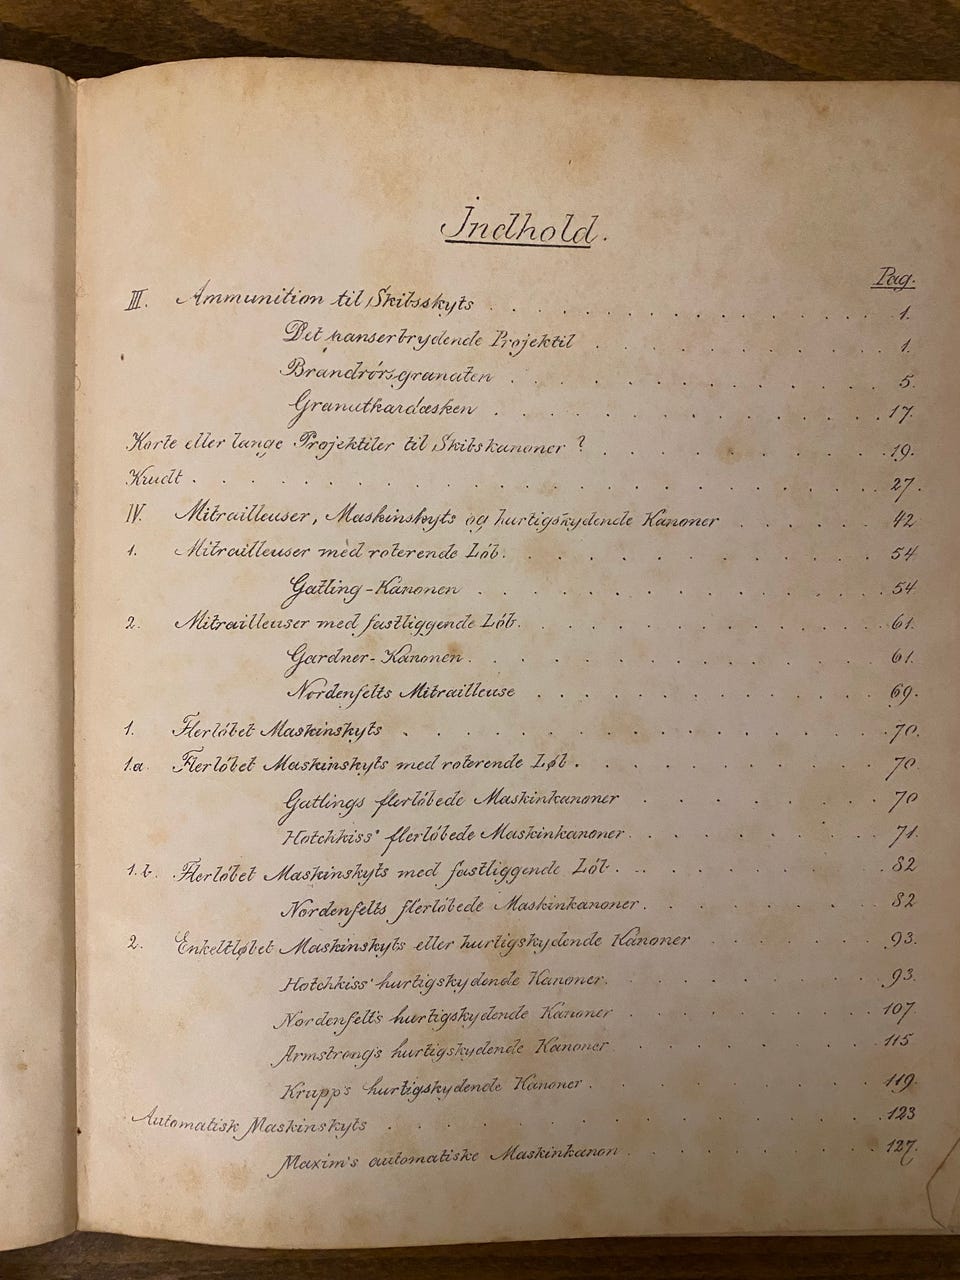 Indhold.
Pag.
III. Ammunition til Skibsskyts . . . . . . . . . . . . . . . 1.
Det panserbrydende Projektil . . . . . . . . . 1.
Brandrörsgranaten . . . . . . . . . . . 5.
Granatkardæsken . . . . . . . . . . . . 17.
Korte eller lange Projektiler til Skibskanoner ? . . . . . . . . . 19.
Krudt . . . . . . . . . . . . . . . . . . . 27.
IV. Mitrailleuser, Maskinskyts og hurtigskydende Kanoner . . . . 42
1. Mitrailleuser med roterende Löb. . . . . . . . . . . 54
Gatling-Kanonen . . . . . . . . . . . . 54
2. Mitrailleuser med fastliggende Löb. . . . . . . . . . . 61.
Gardner-Kanonen. . . . . . . . . . . . 61.
Nordenfelts Mitrailleuse . . . . . . . . . . 69.
1. Flerlöbet Maskinskyts . . . . . . . . . . . . . . 70.
1.a. Flerlöbet Maskinskyts med roterende Løb. . . . . . . . . 70
Gatlings flerlöbede Maskinkanoner . . . . . . . 70
Hotchkiss' flerlöbede Maskinkanoner. . . . . . . . 71.
1.b. Flerlöbet Maskinskyts med fastliggende Löb. . . . . . . . . 82
Nordenfelts flerlöbede Maskinkanoner. . . . . . . 82
2. Enkeltløbet Maskinskyts eller hurtigskydende Kanoner . . . . . 93.
Hotchkiss' hurtigskydende Kanoner. . . . . . . . 93.
Nordenfelt's hurtigskydende Kanoner . . . . . . . 107.
Armstrong's hurtigskydende Kanoner . . . . . . . 115
Krupp's hurtigskydende Kanoner . . . . . . . . 119.
Automatisk Maskinskyts . . . . . . . . . . . . . . 123
Maxim's automatiske Maskinkanon . . . . . . . 127.